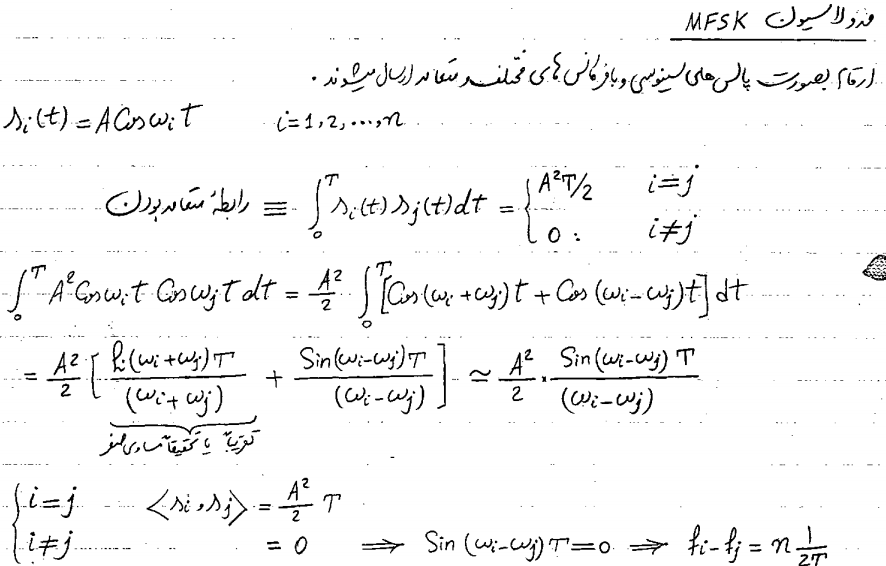 مدولاسیون MFSK
ارقام بصورت پالس های سینوسی و با فرکانس های مختلف و متعامد ارسال میشوند .
s_i(t) = A Cos ω_i t    i = 1, 2, ..., n
رابطهٔ متعامد بودن ≡ ∫_0^T s_i(t) s_j(t) dt = { A²T/2   i = j
0 :   i ≠ j
∫_0^T A² Cos ω_i t Cos ω_j t dt = A²/2 ∫_0^T [Cos (ω_i + ω_j) t + Cos (ω_i - ω_j) t] dt
= A²/2 [ (ω_i + ω_j) T / (ω_i + ω_j) + Sin (ω_i - ω_j) T / (ω_i - ω_j) ] ≃ A²/2 . Sin (ω_i - ω_j) T / (ω_i - ω_j)
تقریباً یا تحقیقاً مساوی صفر
{ i = j   <s_i, s_j> = A²/2 T
i ≠ j   = 0 ⟹ Sin (ω_i - ω_j) T = 0 ⟹ f_i - f_j = n 1/2T